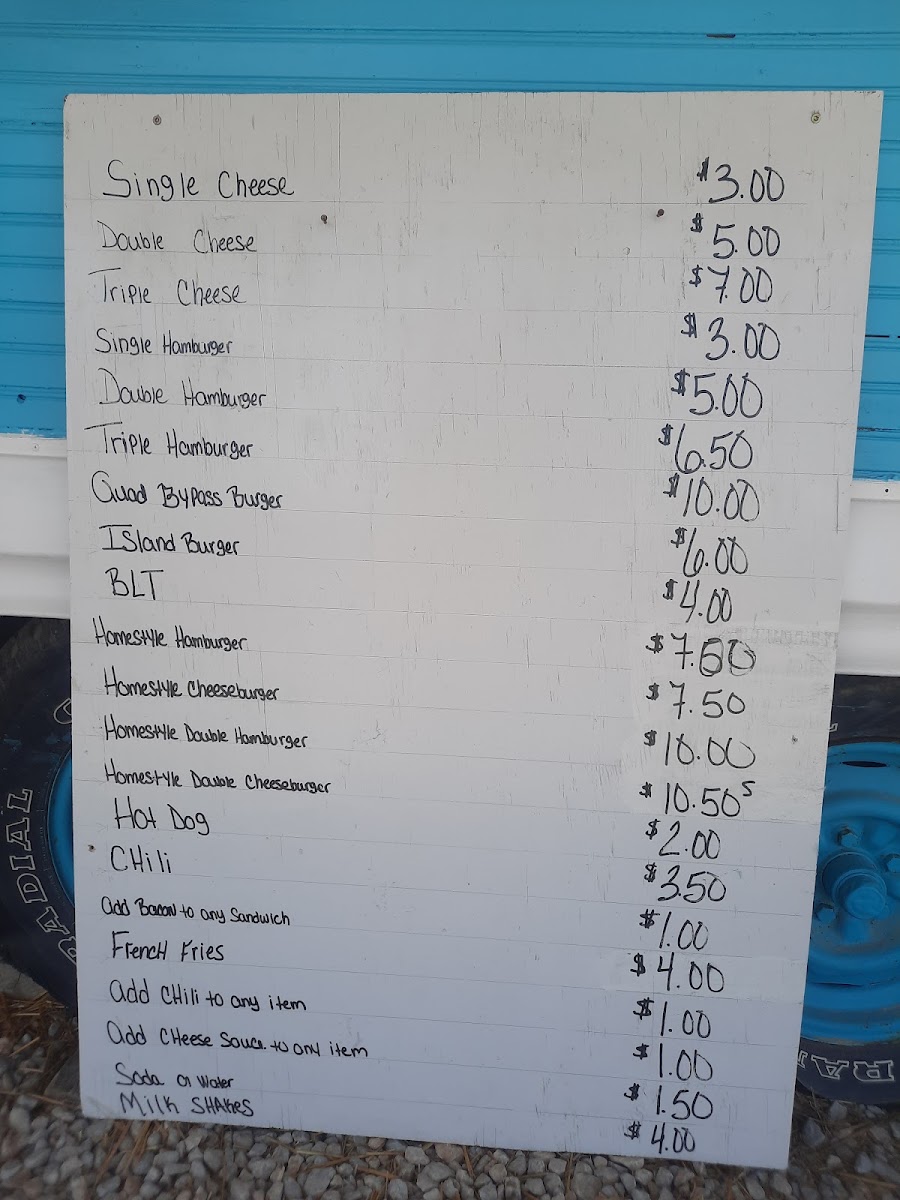 Single Cheese $3.00
Double Cheese $5.00
Triple Cheese $7.00
Single Hamburger $3.00
Double Hamburger $5.00
Triple Hamburger $6.50
Quad Bypass Burger $10.00
Island Burger $6.00
BLT $4.00
Homestyle Hamburger $7.00
Homestyle Cheeseburger $7.50
Homestyle Double Hamburger $10.00
Homestyle Double Cheeseburger $10.50
Hot Dog $2.00
CHili $3.50
add Bacon to any Sandwich $1.00
French Fries $4.00
add CHili to any item $1.00
add CHeese Sauce to any item $1.00
Soda or Water $1.50
Milk SHAKes $4.00
RADIAL
RA